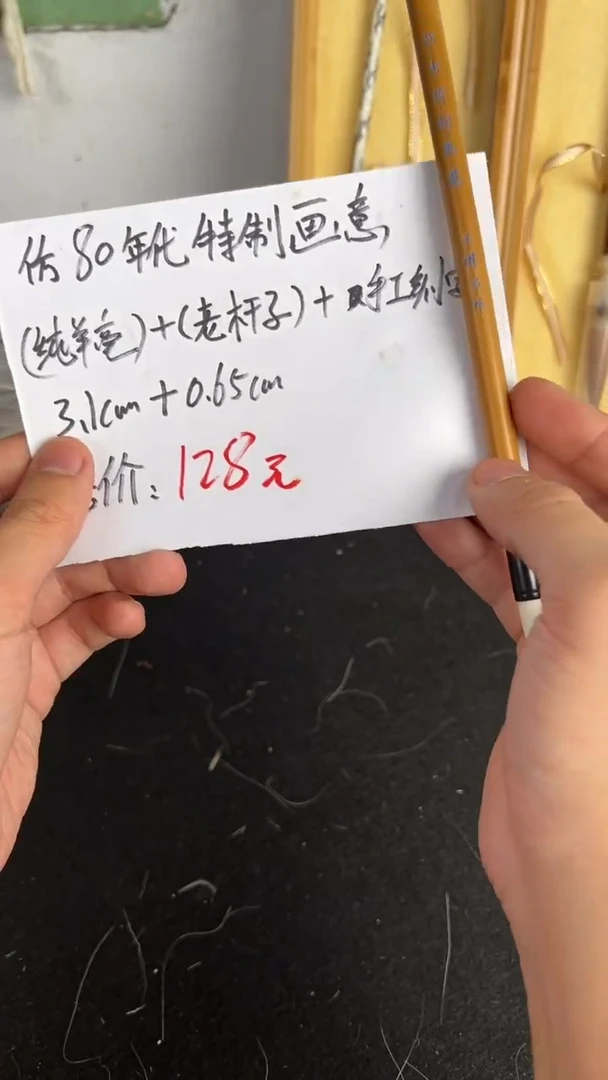 仿80年代特制画意
(纯羊毫)+(老杆子)+手工刻字
3.1cm+0.65cm
价:128元